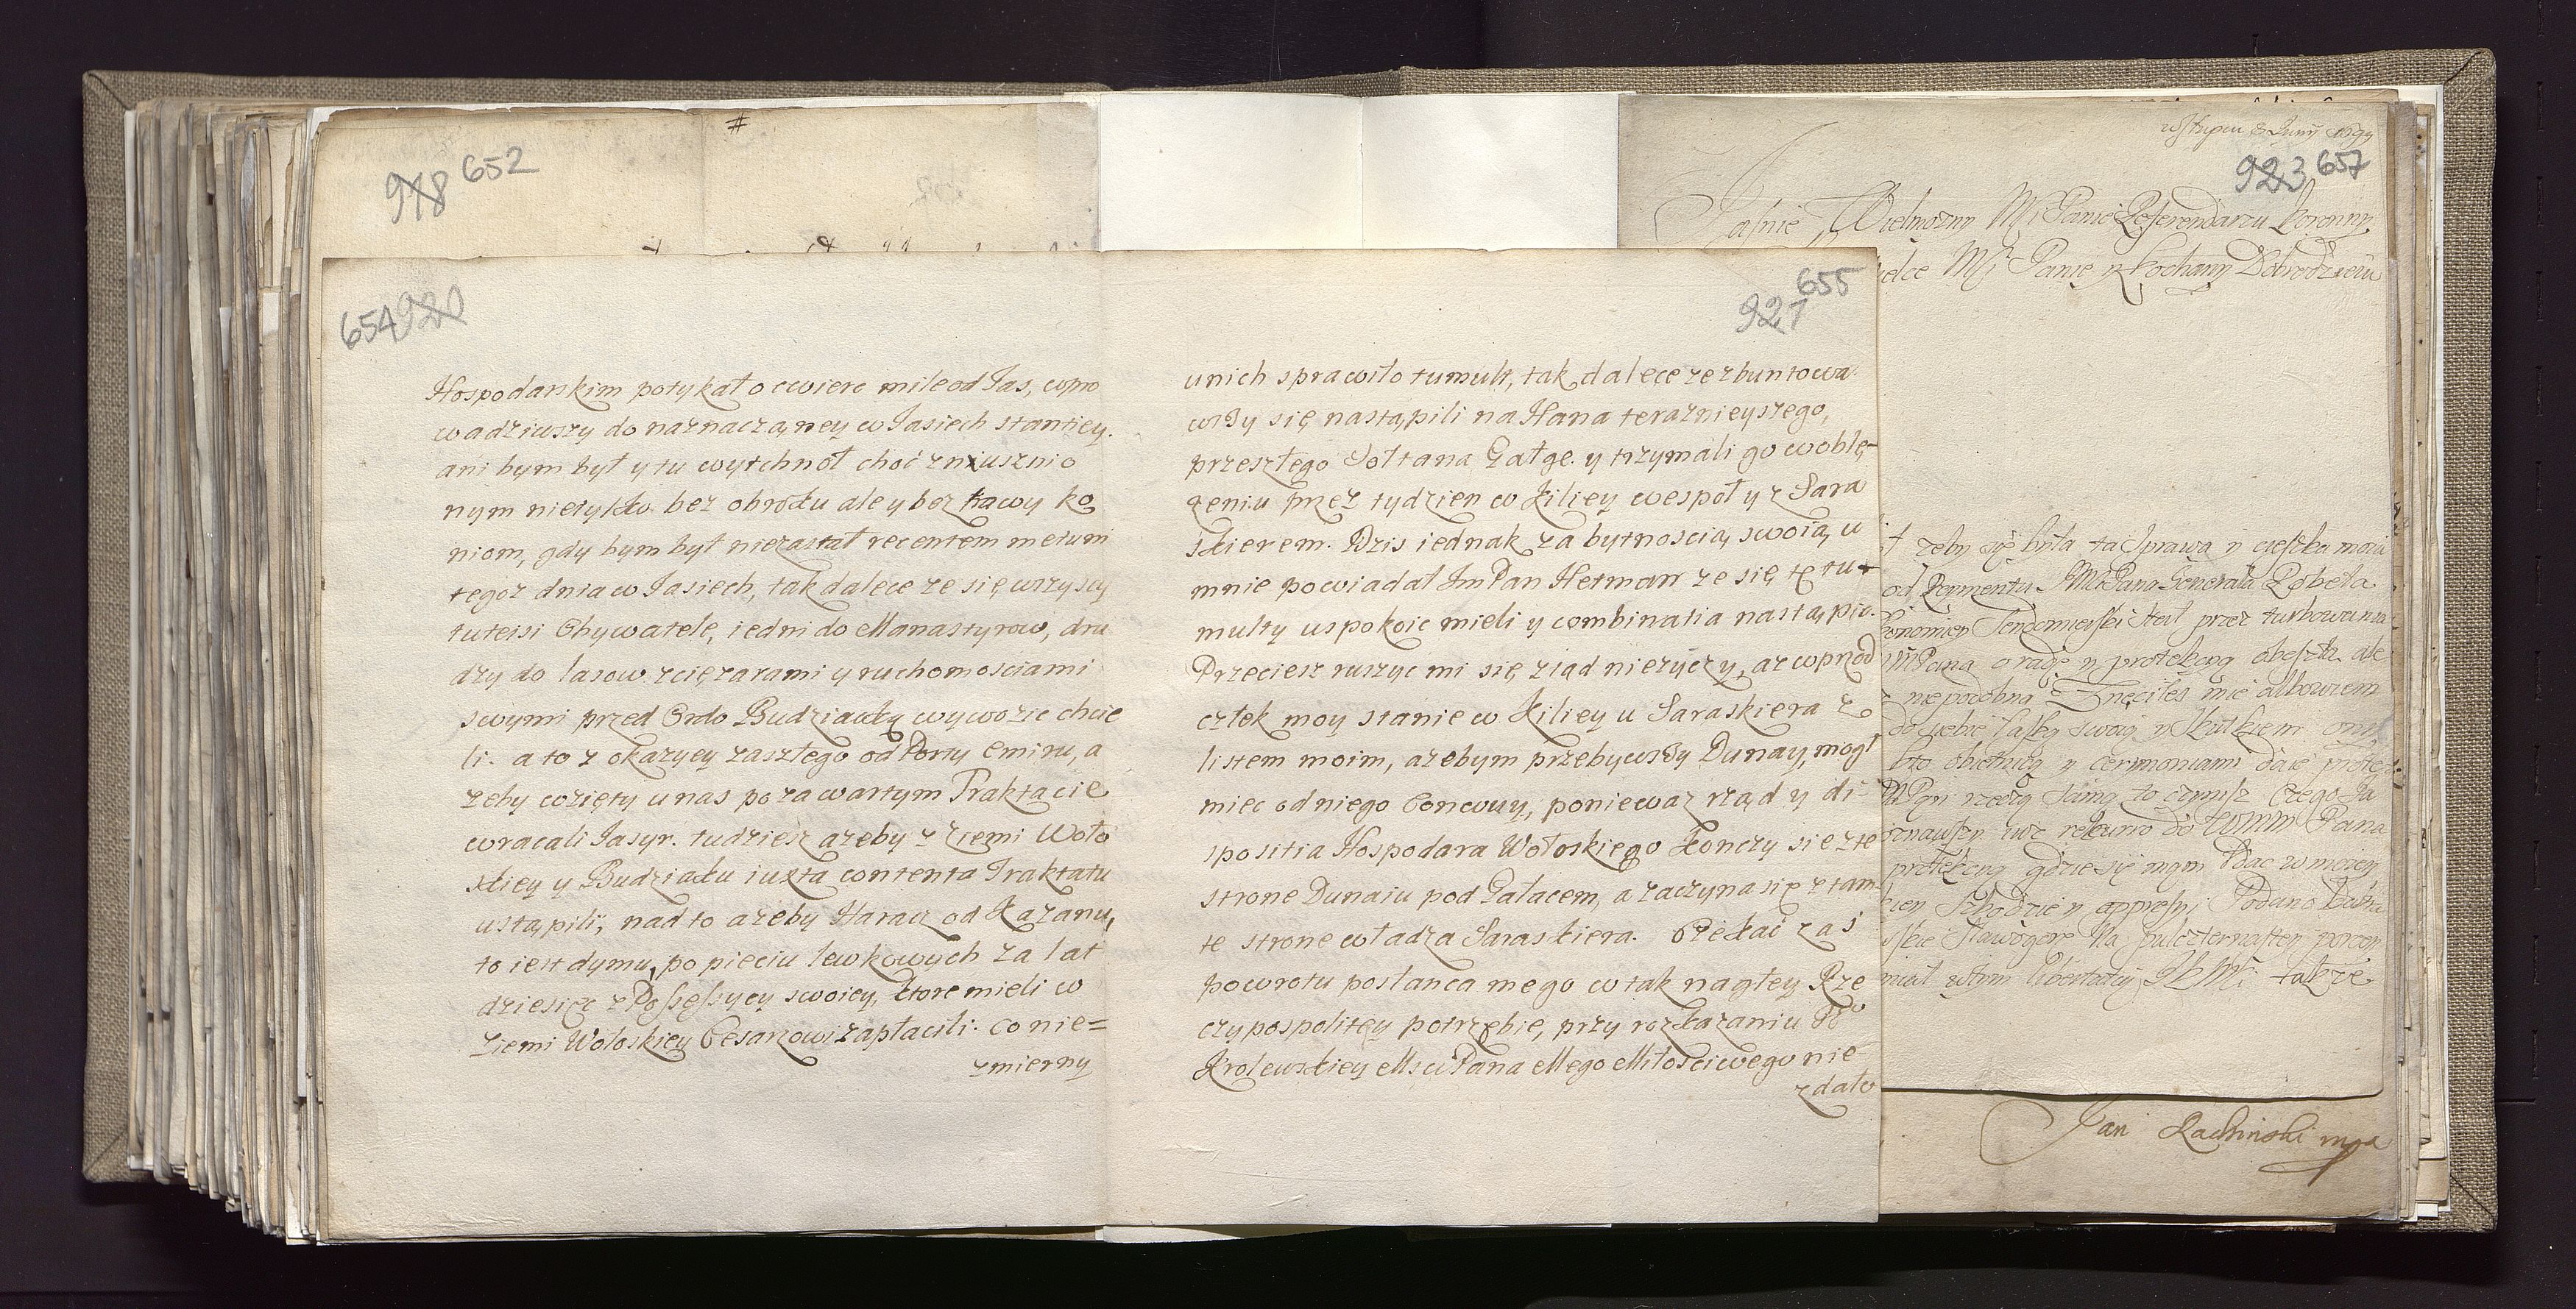 #
918 652
654 920
Hospodarskim potykał o cwierc mile od Jas, wpro
wadziwszy do naznacząney w Jasiech stantiey.
ani bym był y tu wytchnoł choć
nym nietylko bez obroku ale y bez trawy ko
niom, gdy bym był niezastał recentem metum
tegoz dnia w Jasiech, tak dalece ze się wszyscy
tuteisi Obywatele, iedni do Manastyrow, dru
dzy do lasow z cięzarami y ruchomosciami
swymi przed Ordo Budziacką wywozic chcie
li. a to z okazyey zaszłego od Porty Emiru, a
zeby wzięty u nas po zawartym Traktacie
wracali Jasyr. tudziesz azeby z ziemi Woło
skiey y Budziaku iuxta contenta Traktatu
ustąpili, nad to azeby Haracz od Kazanu,
to iest dymu, po pieciu lewkowych za lat
dziesięc z Possessyey swoiey, ktore mieli w
ziemi Wołoskiey Cesarzowi zapłacili. co nie=
zmierny
655
921
unich sprawiło tumult, tak dalece ze zbuntowa
wszy się nastąpili na Hana teraznieyszego,
przeszłego Sołtana Gałge. y trzymali go w oblę-
zeniu przez tydzien w Kiliey wespoł y z Sara
skierem. Dzis iednak za bytnoscią swoią u
mnie powiadał Im Pan Hetman ze się te tu-
multy uspokoic mieli y combinatia nastąpic.
Przeciesz ruszyc mi się ztąd nieżyczy, az wprzod
człek moy stanie w Kiliey u Saraskiera z
listem moim, azebym przebywszy Dunay, mogł
miec od niego Convoy, poniewaz rząd y di-
spositia Hospodara Wołoskiego konczy sie z te
strone Dunaiu pod Galacem, a zaczyna się z tam
te strone władza Saraskiera. Czekać zaś
powrotu posłanca mego w tak nagłey Rze
czypospolitey potrzebie, przy rozkazaniu
Krolewskiey Mści Pana Mego Miłosciwego nie
zdało
8 Junij 1699
923 657
Jasnie Wielmozny Mśi Panie Referendarzu Koronny
Mśi Panie y Kochany Dobrodzieiu
zeby się była ta sprawa y cieszka moia
od Regmentu Pana Generała
przez turbowania
Pana o radę y protekcyą
nepodobna mie albowiem
do siebie łaską swoią y skutkiem
kto obietnicy y ceremoniami daie
Pan rzeczą samą to czynisz czego Ja
Pana
protekcyą gdzie się mam
Podano
także
Jan mpa